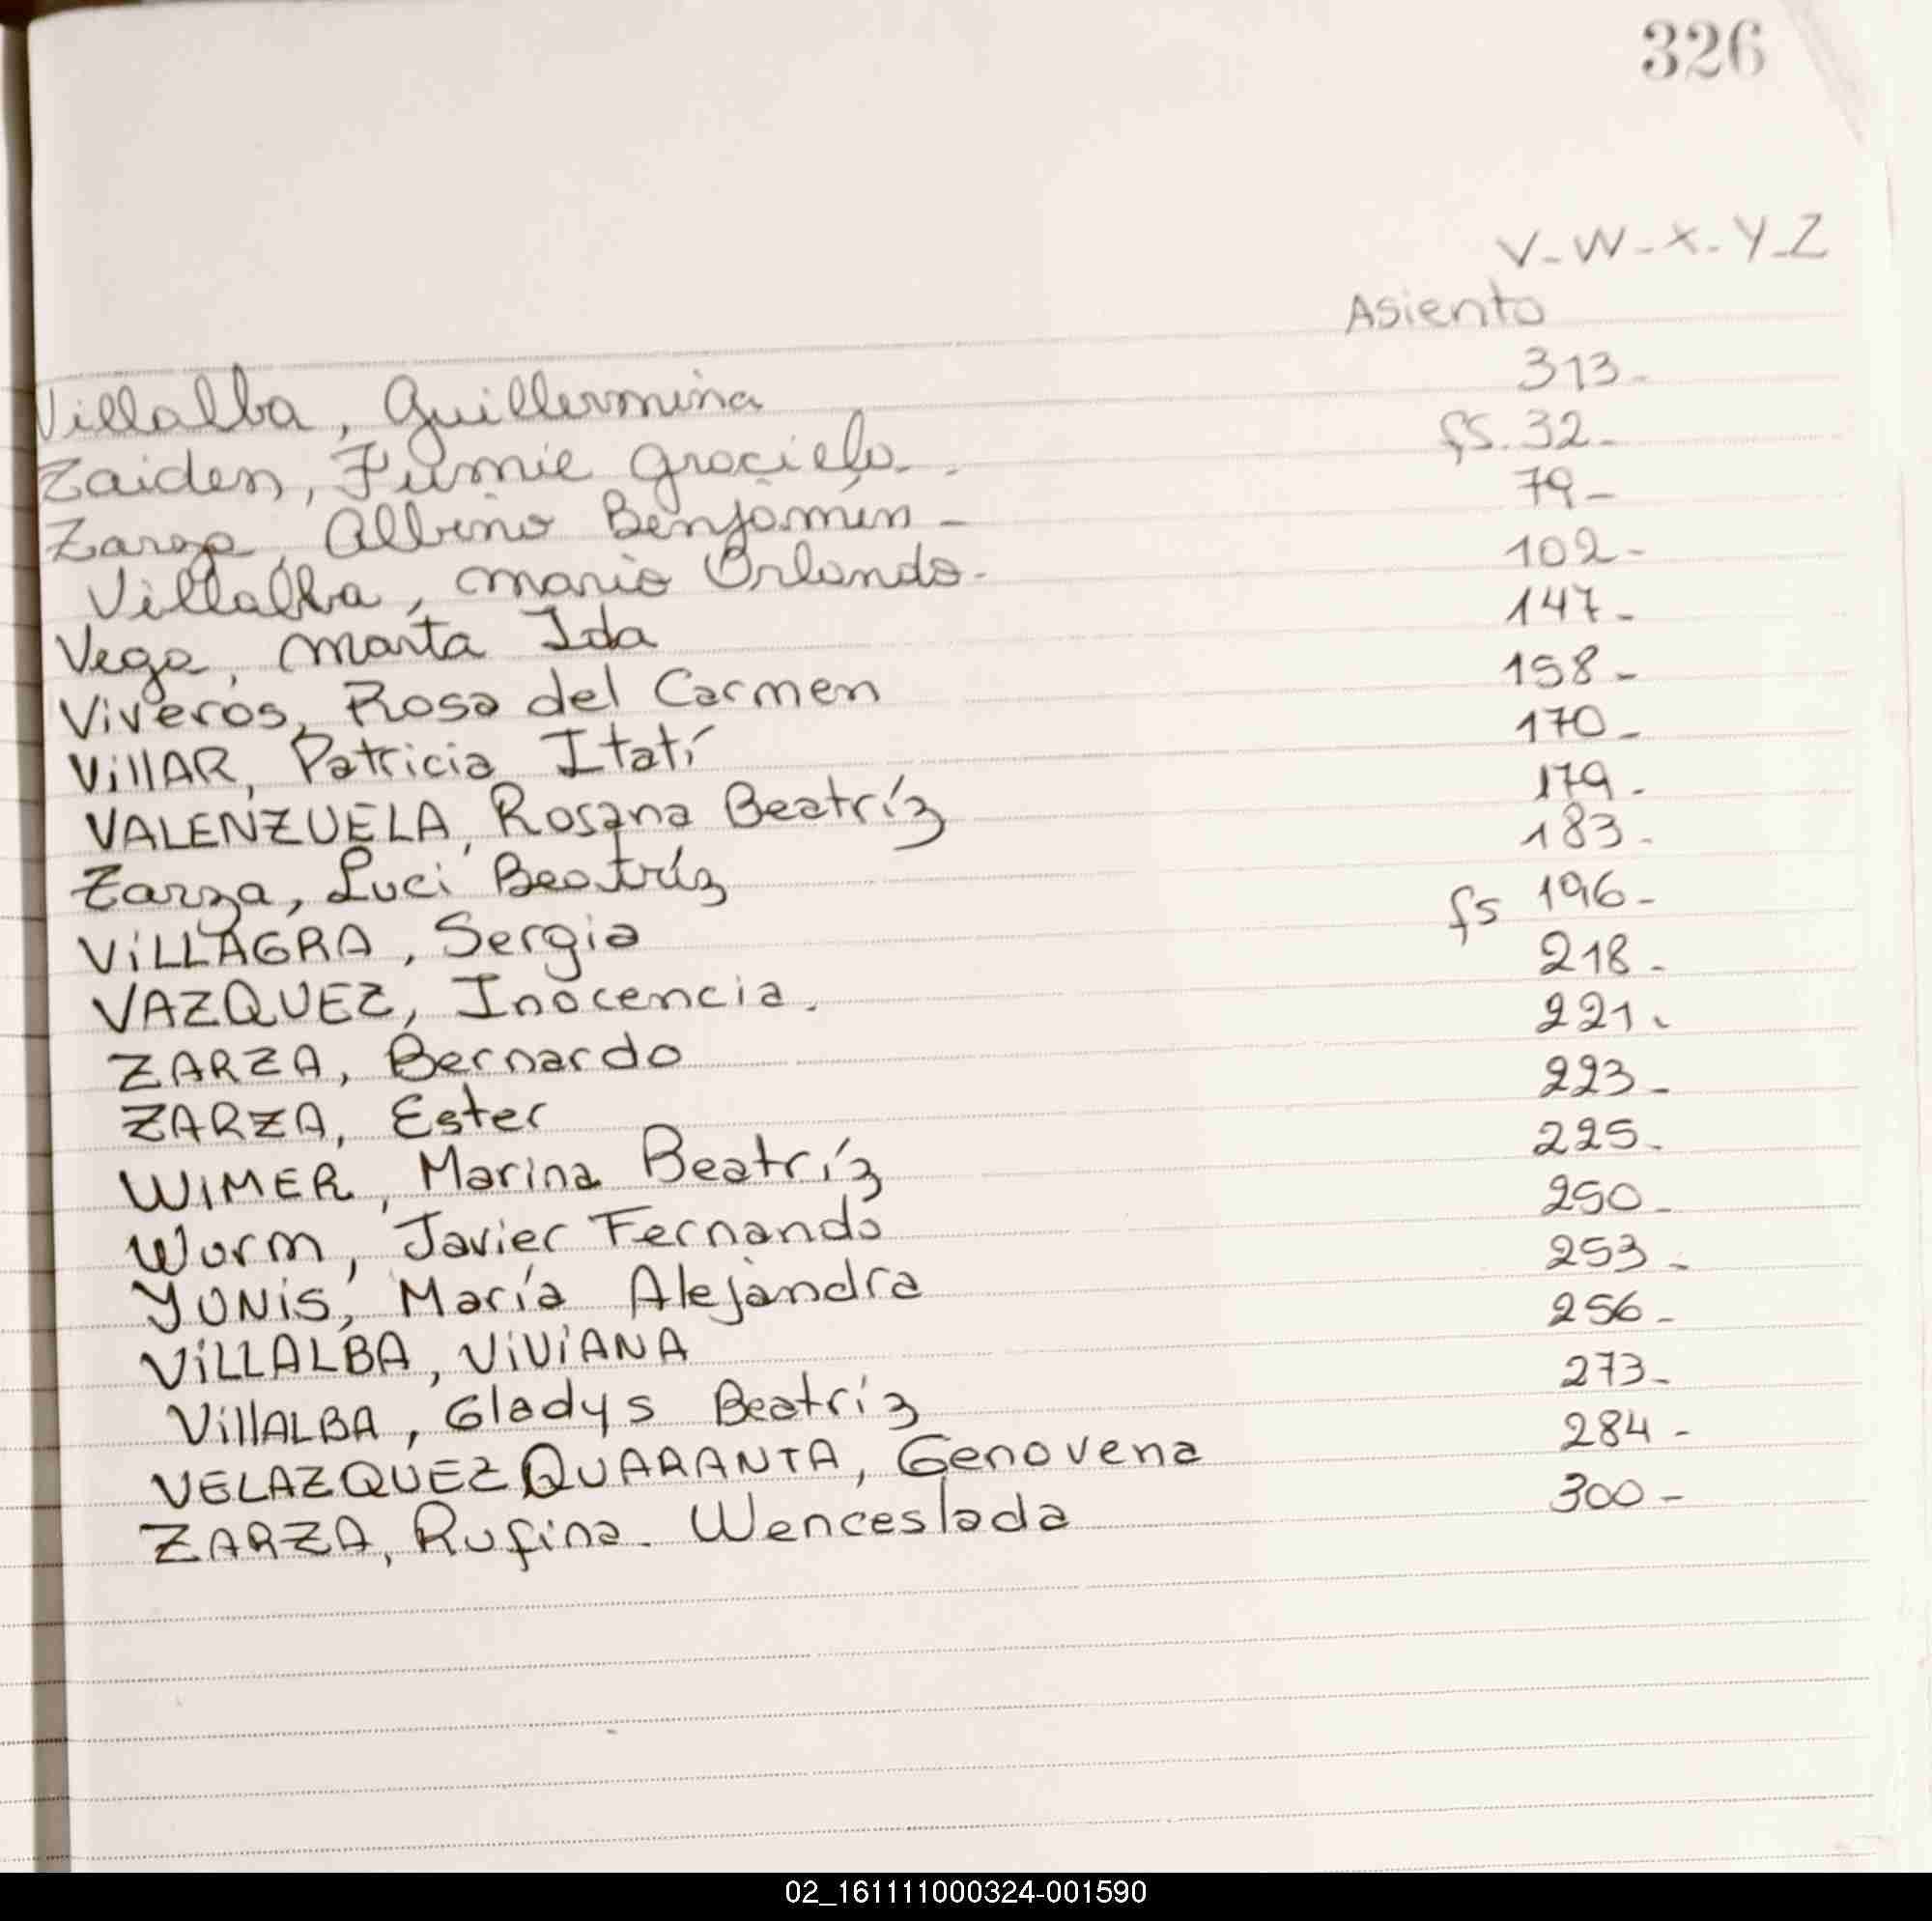 326
V-W-X-Y-Z
Asiento
Villalba, Guillermina 313-
Zaiden, Fumie Graciela. fs. 32-
Zarza, Albino Benjamín - 79-
Villalba, Mario Orlando. 102-
Vega, Marta Ida 147-
Viveros, Rosa del Carmen 158-
VillAR, Patricia Itatí 170-
VALENZUELA, Rosana Beatríz 179.
Zarza, Luci Beatríz 183.
ViLLAGRA, Sergia fs 196-
VAZQUEZ, Inocencia. 218.
ZARZA, Bernardo 221.
ZARZA, Ester 223-
WIMER, Marina Beatríz 225.
Worm, Javier Fernando 250-
YUNiS, María Alejandra 253-
ViLLALBA, ViViANA 256-
VillALBA, Gladys Beatríz 273-
VELAZQUEZ QUARANTA, Genovena 284-
ZARZA, Rufina. Wenceslada 300-
02_161111000324-001590